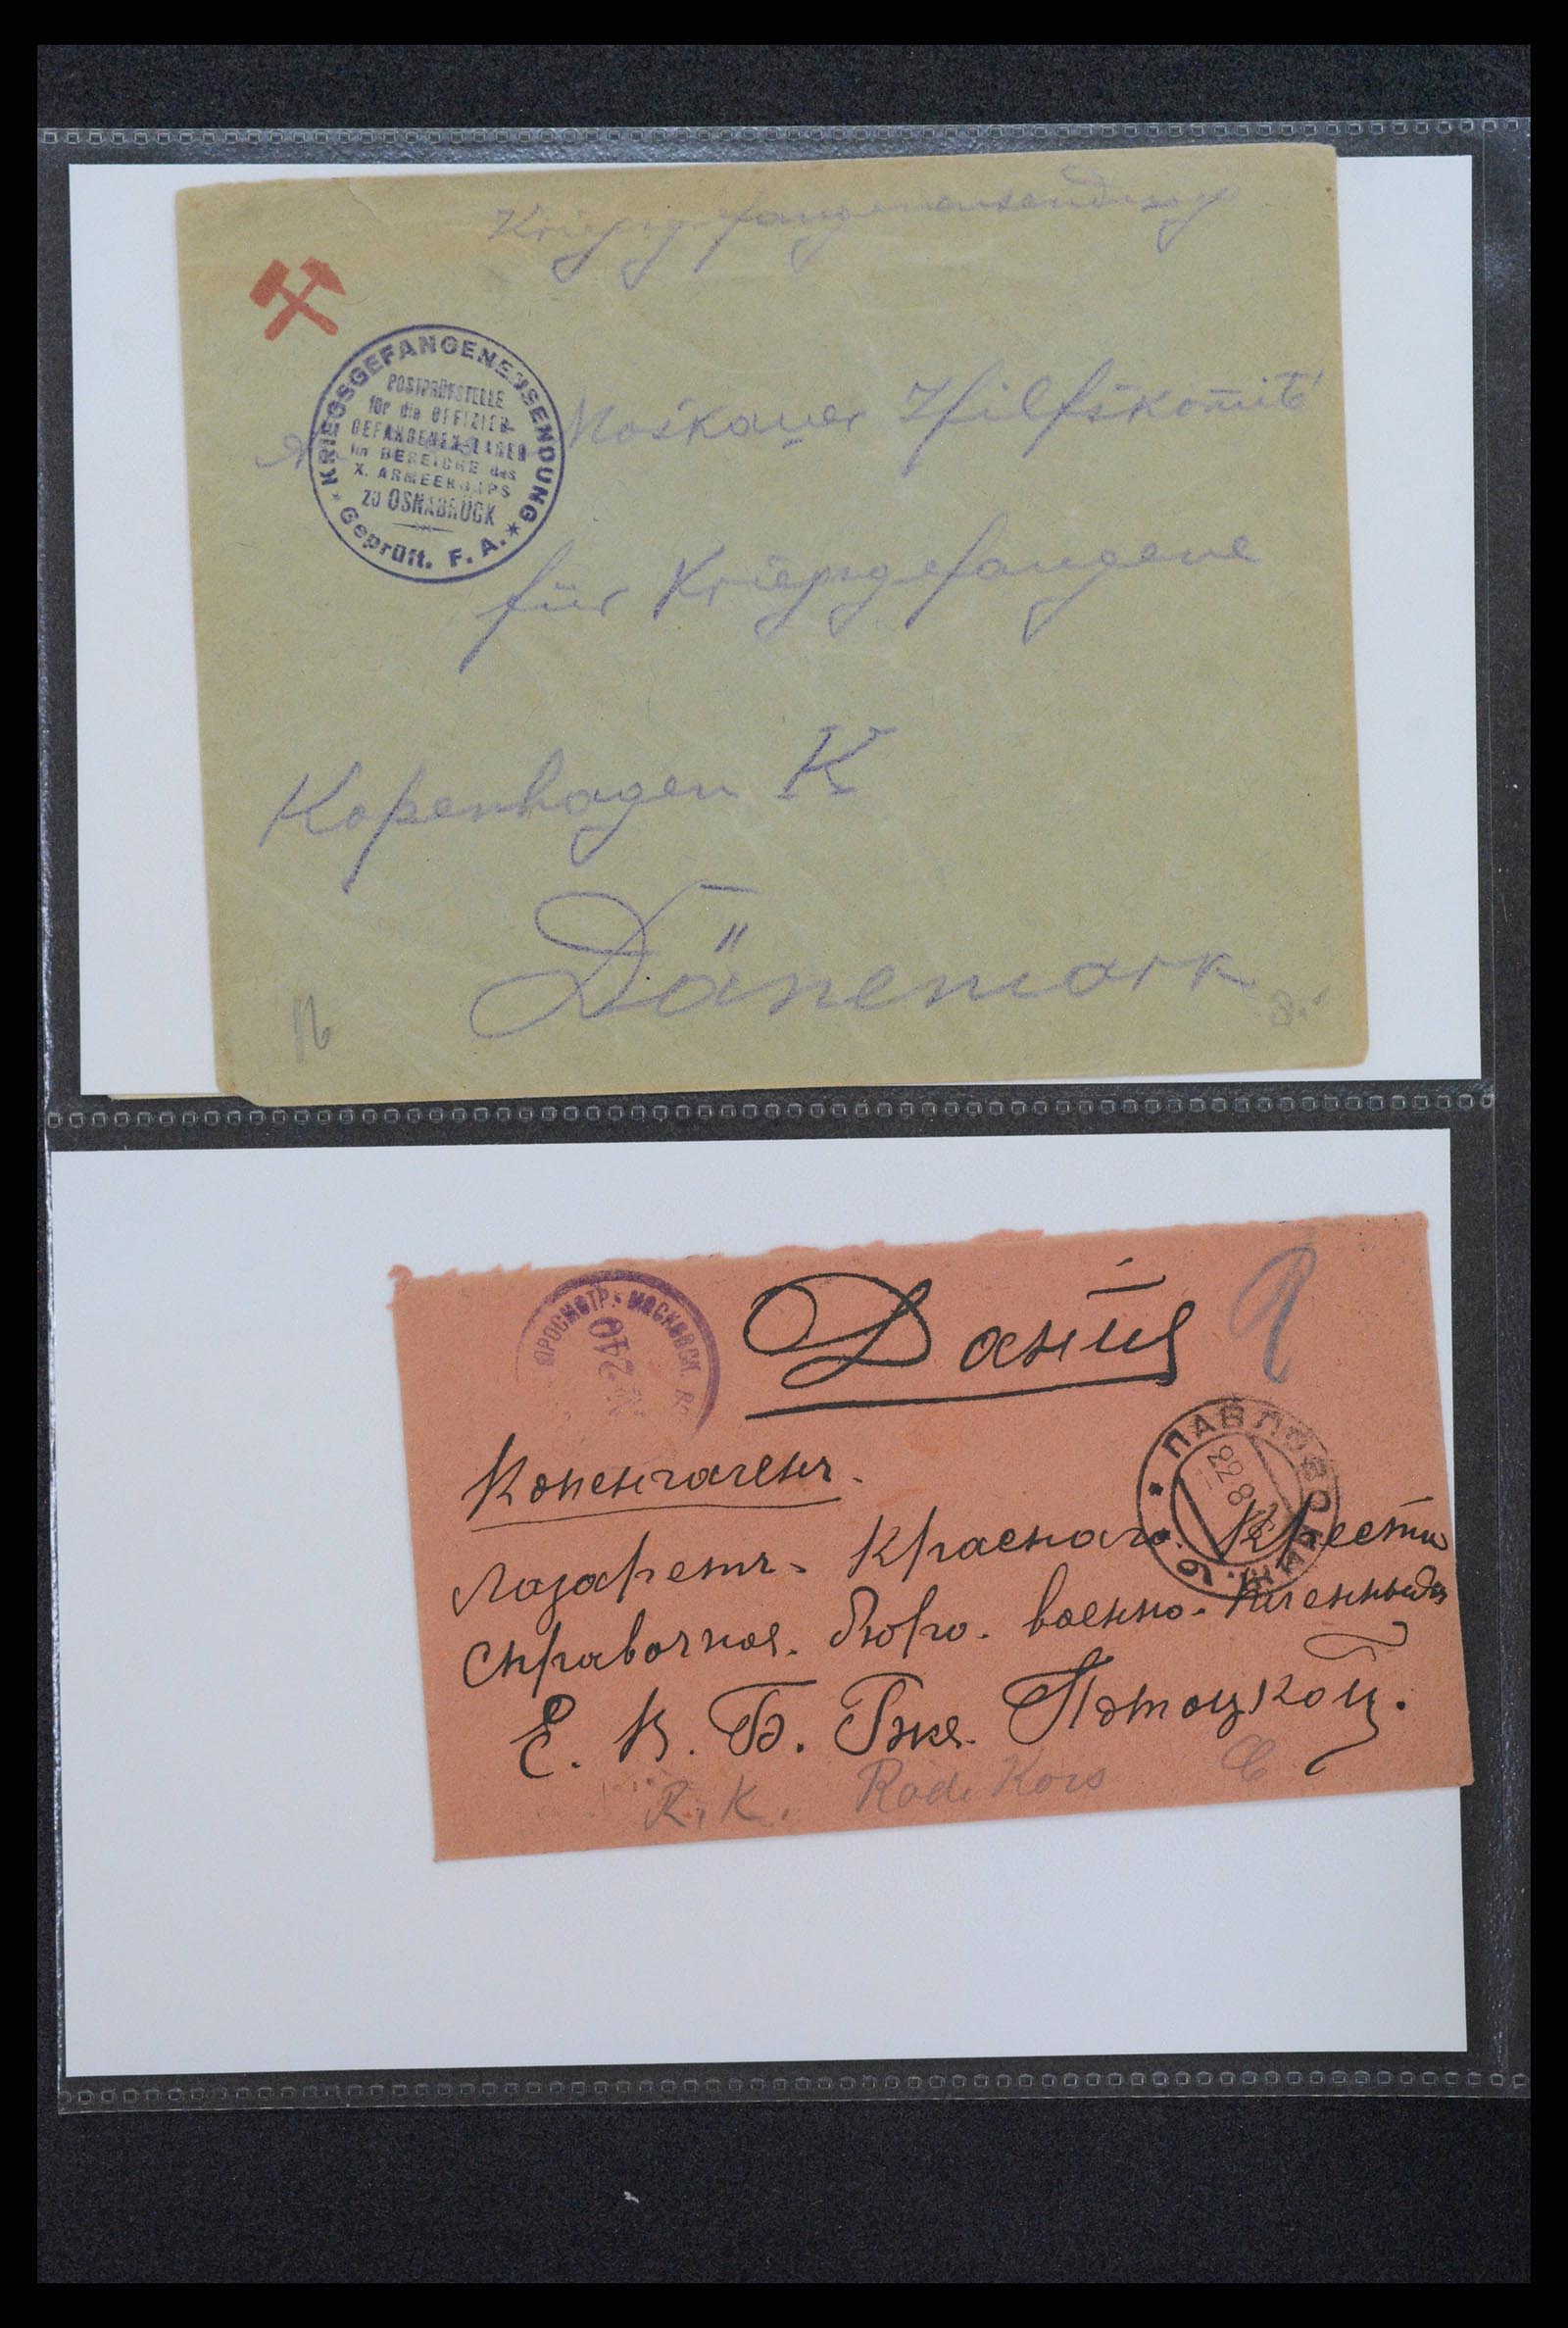 Kriegsgefangenensendung
KRIEGSGEFANGENENSENDUNG
POSTPRÜFSTELLE
für die OFFIZIER-
GEFANGENEN-LAGER
im BEREICHE des
X. ARMEEKORPS
zu OSNABRÜCK
Geprüft. F. A.
Moskauer Hilfskomité
für Kriegsgefangene
Kopenhagen K
Dänemark
ПРОСМОТР. МОСКОВСК.
№ 240
Данія
Копенгагенъ.
Лазаретъ. Краснаго. Креста
Справочное. бюро. военно-пленныхъ
Е. В. Б. Гже. Потоцкой.
R. K. Röde Kors